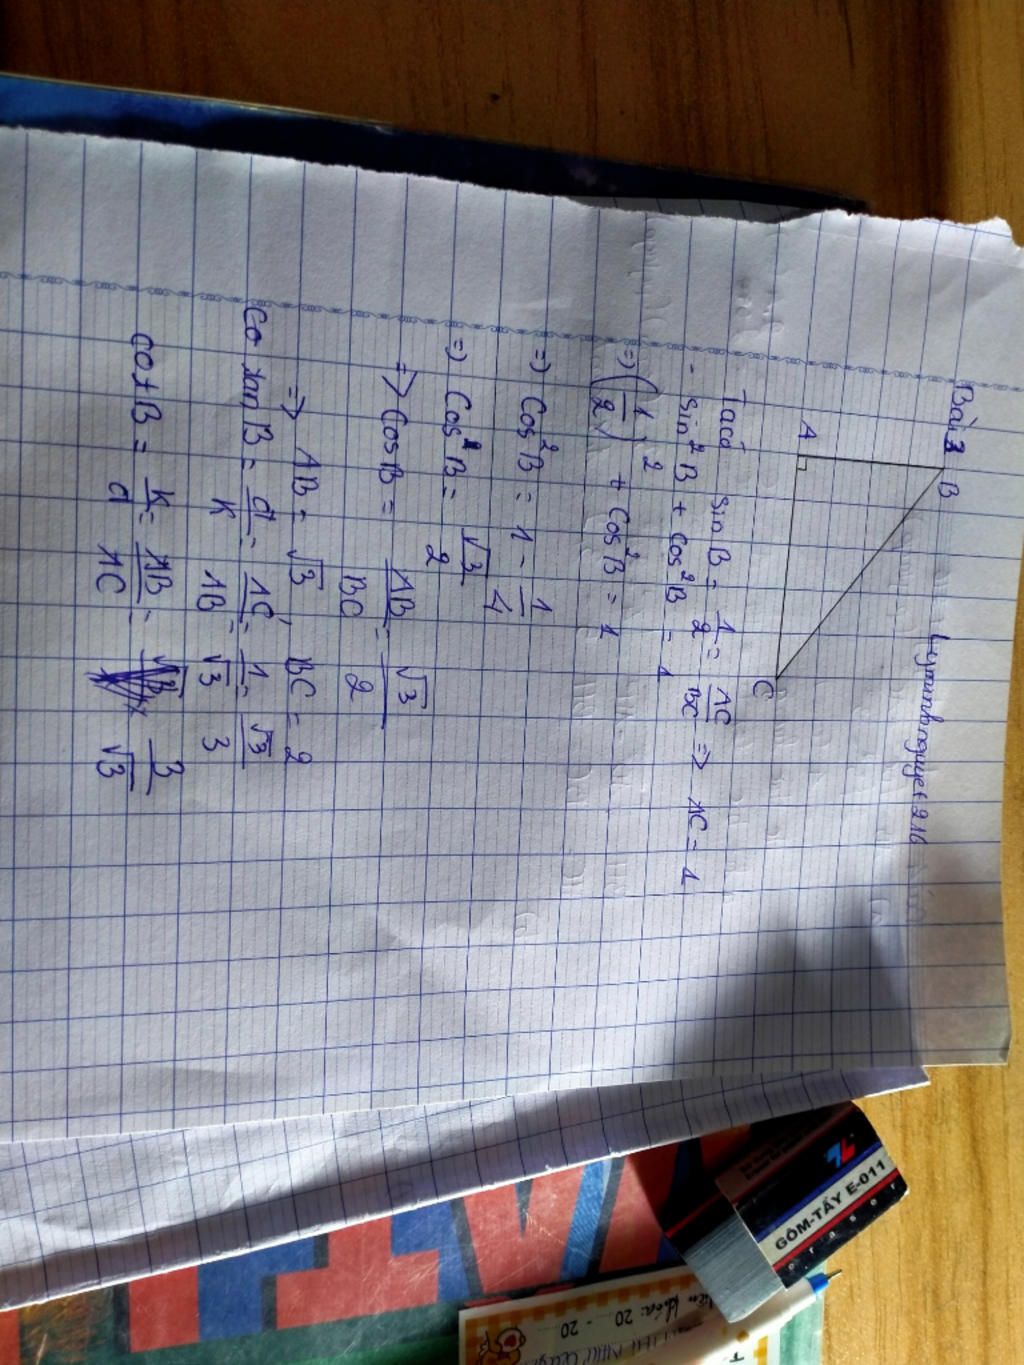 Bài 3
luyminhnguyet216
B
A
C
Ta có sin B = 1/2 = AC/BC => AC = 1
- sin² B + cos² B = 1
=> (1/2)² + cos² B = 1
=> cos² B = 1 - 1/4
=> cos² B = √3/2
=> cos B = AB/BC = √3/2
=> AB = √3, BC = 2
Co tan B = đ/K = AC/AB = 1/√3 = √3/3
cot B = K/đ = AB/AC = 3/√3
GÔM-TẨY E-011
eraser
khóa: 20 - 20